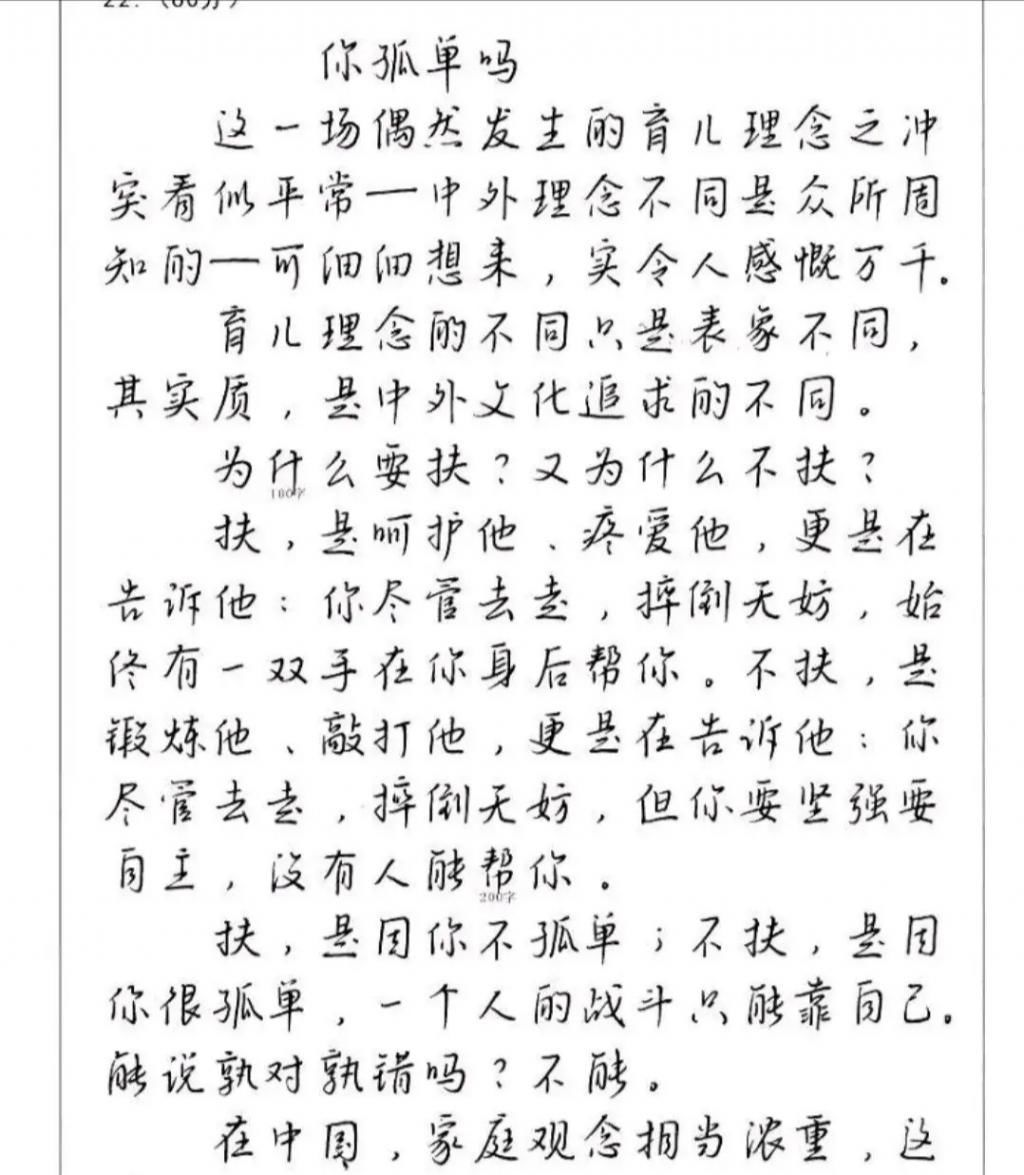 22.（60分）
你孤单吗
这一场偶然发生的育儿理念之冲
突看似平常——中外理念不同是众所周
知的——可细细想来，实令人感慨万千。
育儿理念的不同只是表象不同，
其实质，是中外文化追求的不同。
为什么要扶？又为什么不扶？
100字
扶，是呵护他、疼爱他，更是在
告诉他：你尽管去走，摔倒无妨，始
终有一双手在你身后帮你。不扶，是
锻炼他、敲打他，更是在告诉他：你
尽管去走，摔倒无妨，但你要坚强要
自主，没有人能帮你。
200字
扶，是因你不孤单；不扶，是因
你很孤单，一个人的战斗只能靠自己。
能说孰对孰错吗？不能。
在中国，家庭观念相当浓重，这